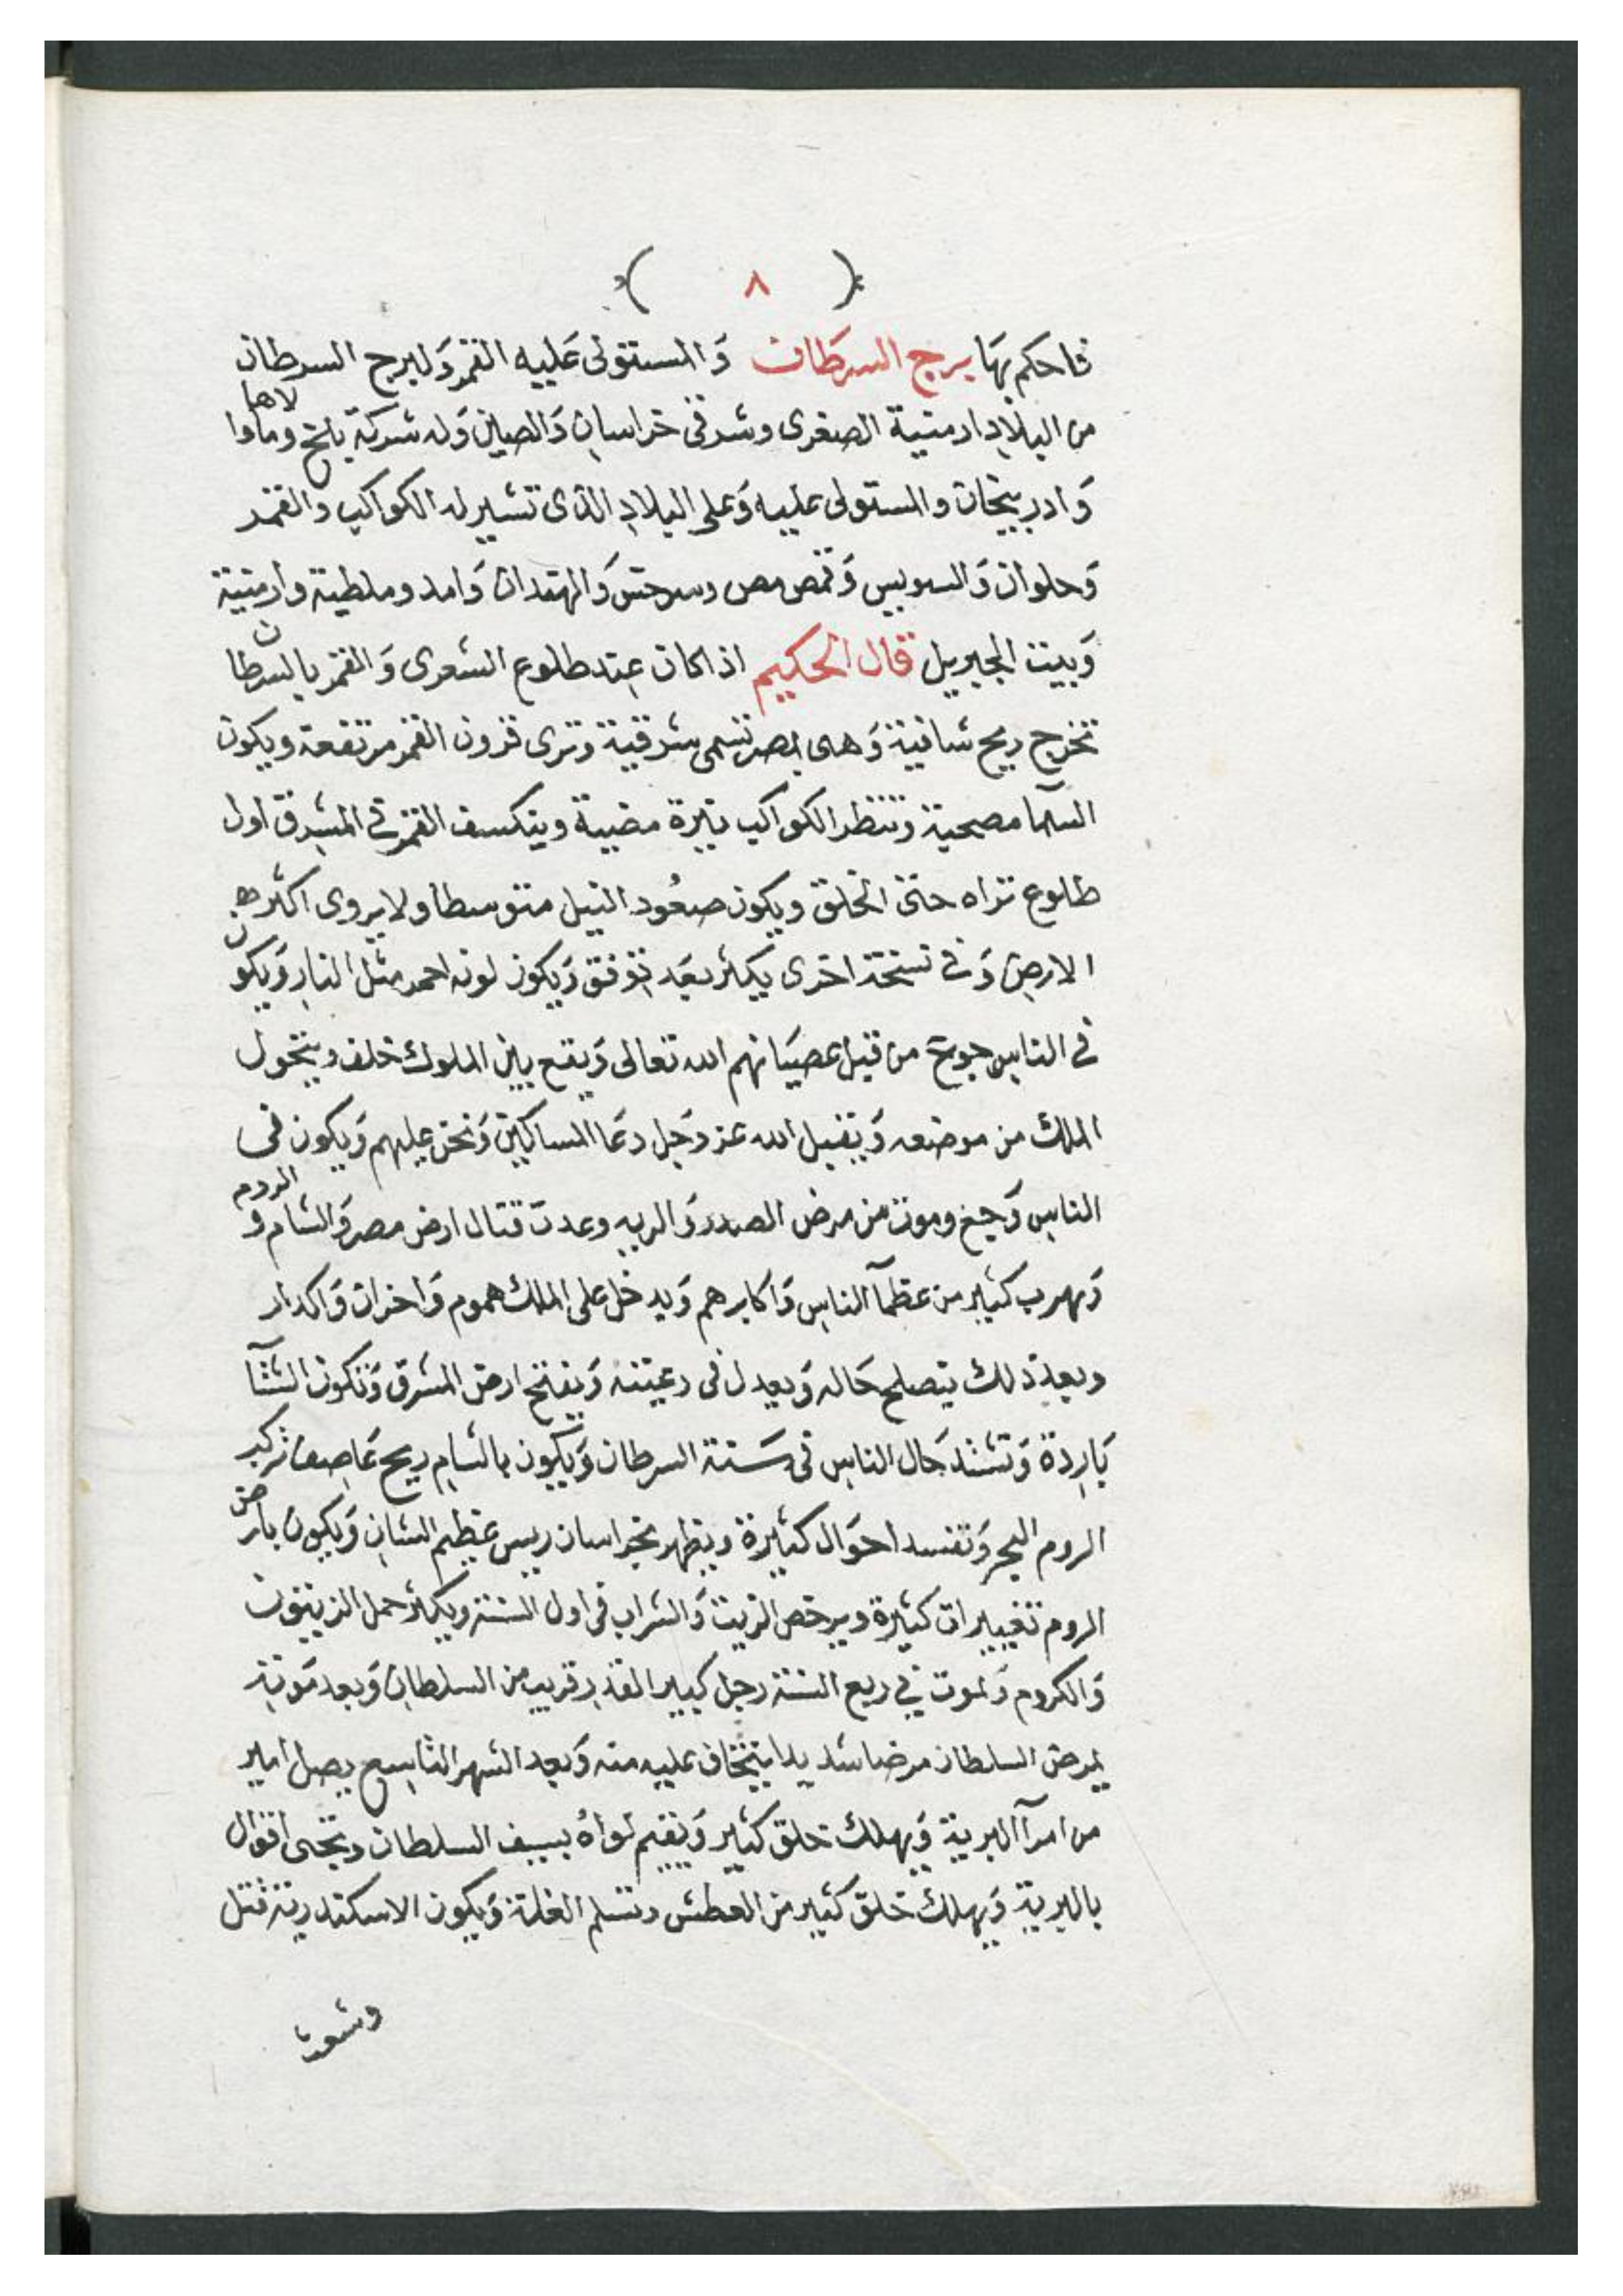 ( ٨ )
فاحكم بها برج السرطان وَالمستولى عَليه القمر وَلبرج السرطان
من البلاد ارمنية الصغرى وشرقى خراسان وَالصين وَله شركة بلخ وماوالاها
وَادربيجان والمستولى عليه وَعلى البلاد الذى تشير له الكواكب والقمر
وَحلوان وَالسويس وَقمص مص وسرحتس وَالهتدان وَامد وملطية وارمنية
وَبيت الجبريل قال الحكيم اذا كان عند طلوع الشعرى وَالقمر بالسرطان
تخرج ريح شافية وَهى بمصر تسمى شرقية وترى قرون القمر مرتفعة ويكون
السمآ مصحية وتنظر الكواكب نيرة مضية وينكسف القمر فى المشرق اول
طلوع تراه حتى الخلق ويكون صعُود النيل متوسطا ولا يروى اكثرهـ
الارض وَفى نسخة اخرى يكثر بعَد توفق وَيكون لونه احمر مثل النار وَيكون
فى الناس جوع من قبل عصيَانهم الله تعالى وَيقع بين الملوك خلف ويتحول
الملك من موضعه وَيقبل الله عز وَجل دعَا المساكين وَتحنن عليهم وَيكون فى
الناس وَجيع وموت من مرض الصدر وَالريه وعدت قتال ارض مصر وَالشام وَالروم
وَيهرب كثير من عظمآ الناس وَاكابرهم وَيدخل على الملك هموم وَاخزان وَاكدار
وبعد ذلك يتصلح حَاله وَيعدل فى رعيته وَيفتح ارض المشرق وَتكون الشتآ
بَاردة وَتشتد حَال الناس فى سَنة السرطان وَيكون بالشام ريح عَاصف تركب
الروم البحر وَتفسد احوَال كثيرة ويظهر بخراسان ريس عظيم الشان وَيكون بارض
الروم تغييرات كثيرة ويرخص الزيت وَالشراب فى اول السنة ويكثر حمل الزيتون
وَالكروم وَيموت فى ربع السنة رجل كبير القدر قريب من السلطان وَبعد مَوته
يمرض السلطان مرضا شديدا يتخاف عليه منه وَبعد الشهر التاسع يصل امير
من امرآ البرية وَيهلك خلق كثير وَيقيم لواهُ بسيف السلطان وتجى اقوال
بالبرية وَيهلك خلق كثير من العطش وتسلم الغلة وَيكون الاسكندرية قتل